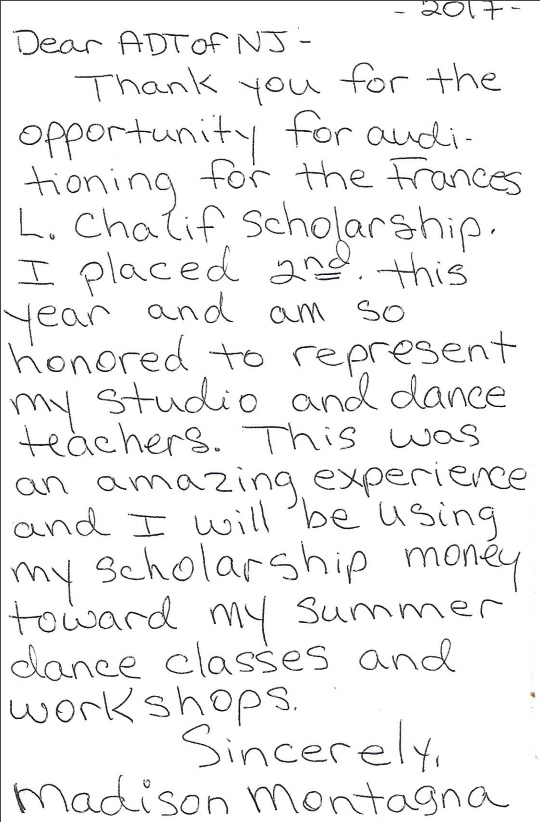 - 2017 -
Dear ADT of NJ -
Thank you for the
opportunity for audi-
tioning for the Frances
L. Chalif Scholarship.
I placed 2nd. this
year and am so
honored to represent
my studio and dance
teachers. This was
an amazing experience
and I will be using
my scholarship money
toward my summer
dance classes and
workshops.
Sincerely,
Madison Montagna